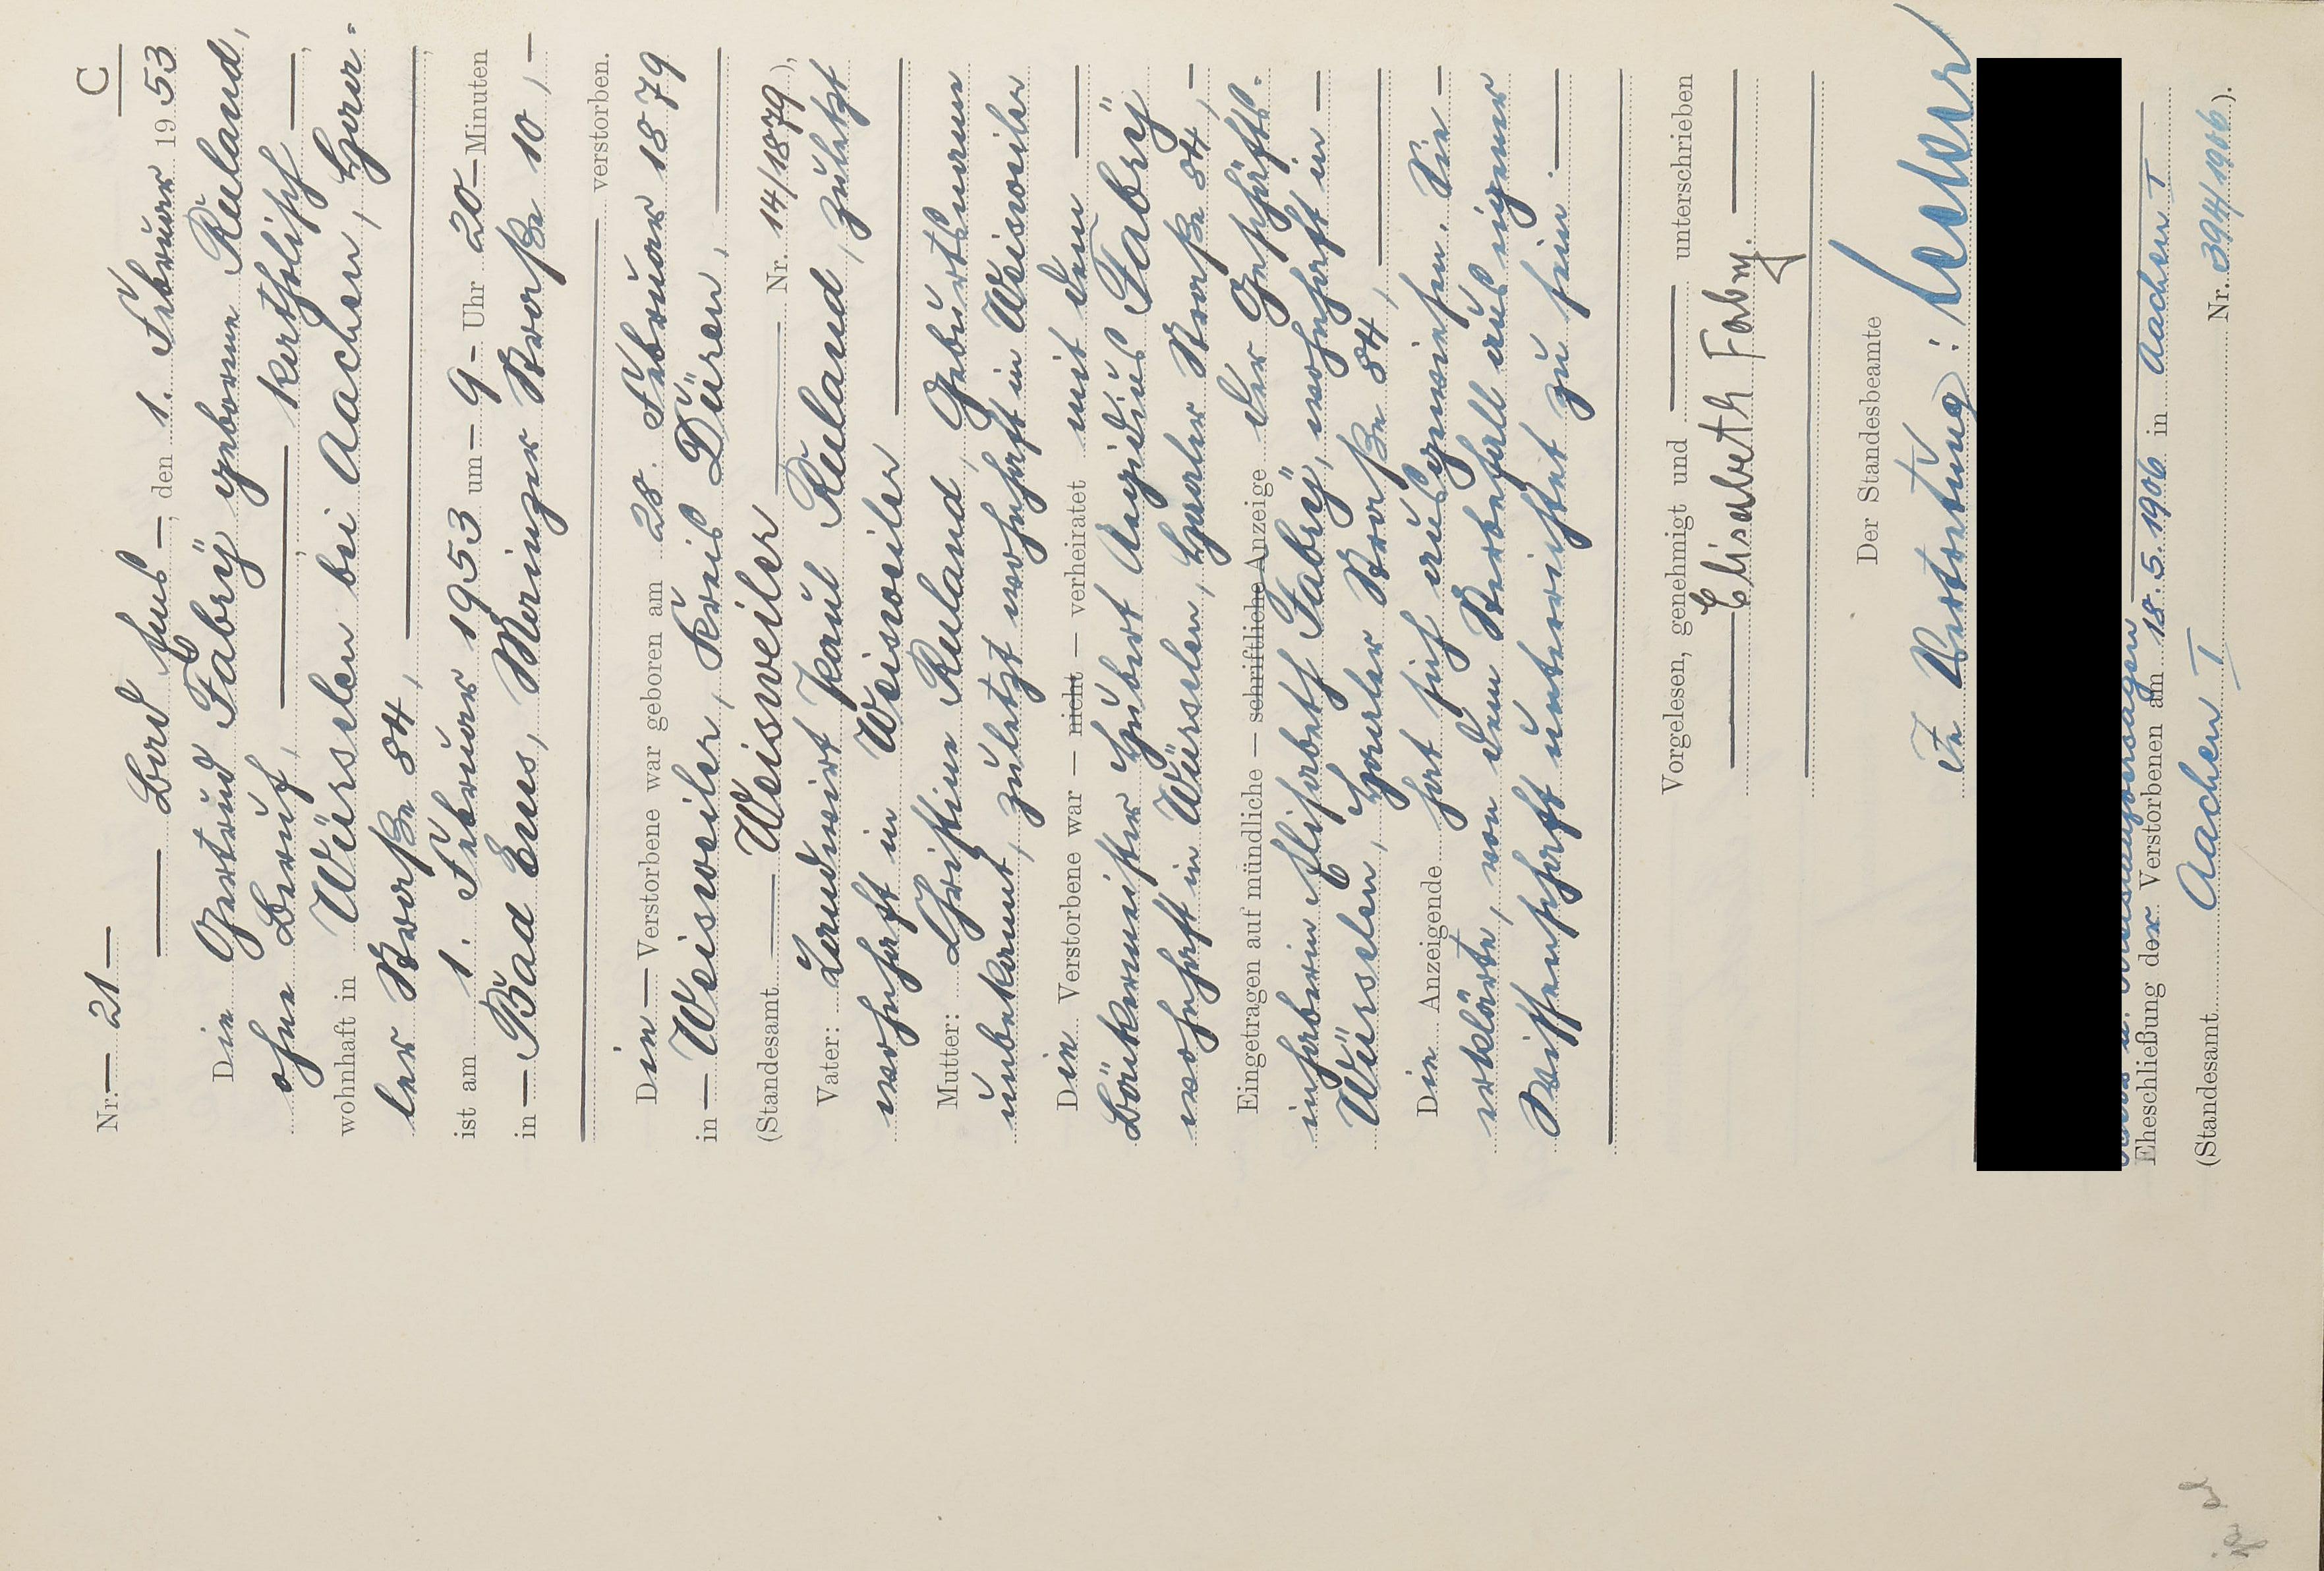 C
Nr. 21
Bad Ems, den 1. Februar 1953
Die Gertrud Fabrÿ geborene Ruland,
ohne Beruf, katholisch,
wohnhaft in Würselen bei Aachen, Haar-
ler Straße 84,
ist am 1. Februar 1953 um 9 Uhr 20 Minuten
in Bad Ems, Mainzer Straße 10,
verstorben.
Die Verstorbene war geboren am 28. Februar 1879
in Weisweiler, Kreis Düren,
(Standesamt Weisweiler Nr. 14/1879),
Vater: Landwirt Paul Ruland, zuletzt
wohnhaft in Weisweiler
Mutter: Christine Ruland, Geburtsname
unbekannt, zuletzt wohnhaft in Weisweiler
Die Verstorbene war — nicht — verheiratet mit dem
Bäckermeister Hubert Aegidius Fabrÿ
wohnhaft in Würselen, Haarler Straße 84,
Eingetragen auf mündliche — schriftliche Anzeige der Geschäfts-
inhaberin Elisabeth Fabrÿ, wohnhaft in
Würselen, Haarler Straße 84,
Die Anzeigende hat sich ausgewiesen. Sie
erklärte, von dem Sterbefall aus eigener
Wissenschaft unterrichtet zu sein.
Vorgelesen, genehmigt und unterschrieben
Elisabeth Fabry.
Der Standesbeamte
In Vertretung:
Eheschließung der Verstorbenen am 18.5.1906 in Aachen I
(Standesamt Aachen I Nr. 394/1906).